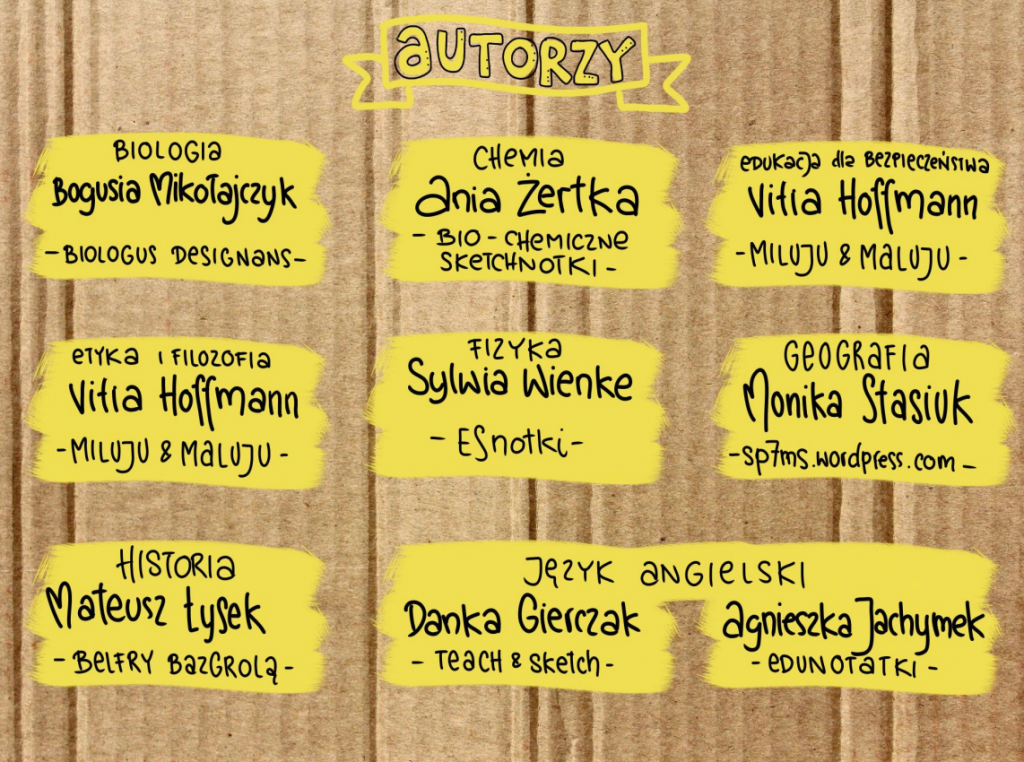 AUTORZY
BIOLOGIA
Bogusia Mikołajczyk
- BIOLOGUS DESIGNANS -
CHEMIA
Ania Żertka
- BIO - CHEMICZNE
SKETCHNOTKI -
EDUKACJA dla BEZPIECZEŃSTWA
Vitia Hoffmann
- MILUJU & MALUJU -
ETYKA I FILOZOFIA
Vitia Hoffmann
- MILUJU & MALUJU -
FIZYKA
Sylwia Wienke
- ESnotki -
GEOGRAFIA
Monika Stasiuk
- sp7ms.wordpress.com -
HISTORIA
Mateusz Łysek
- BELFRY BAZGROLĄ -
JĘZYK ANGIELSKI
Danka Gierczak
- TEACH & Sketch -
Agnieszka Jachymek
- EDUNOTATKI -